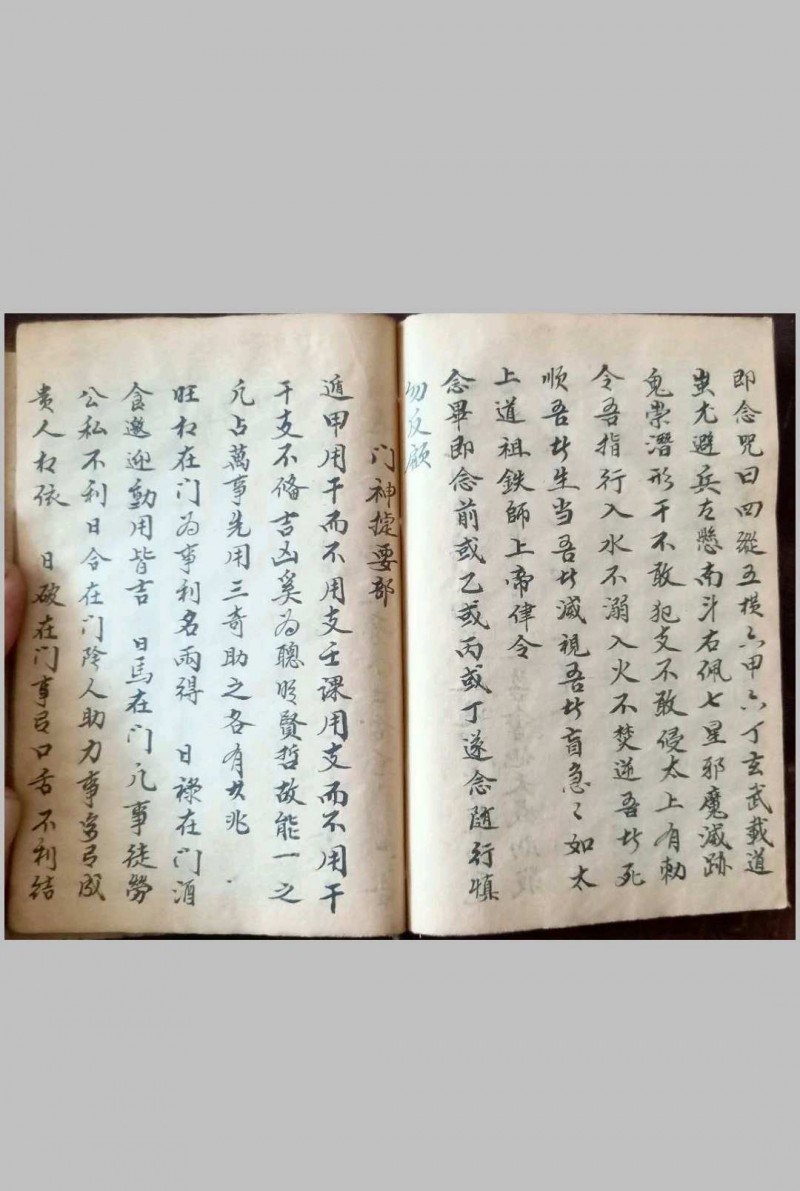 即念咒曰四縱五横六甲六丁玄武載道
蚩尤避兵左懸南斗右佩七星邪魔滅跡
鬼祟潛形干不敢犯支不敢侵太上有勅
令吾指行入水不溺入火不焚逆吾者死
順吾者生当吾者滅視吾者盲急〻如太
上道祖鉄師上帝律令
念畢即念前或乙或丙或丁遂念随行慎
勿反顧
门神捷要部
遁甲用干而不用支壬課用支而不用干
干支不俻吉凶奚为聰明賢哲故能一之
凢占萬事先用三奇助之各有大兆
旺相在门为事利名兩得 日禄在门酒
食邀迎動用皆吉 日馬在门凢事徒勞
公私不利日合在门陰人助力事多有成
貴人相依 日破在门事有口舌不利結